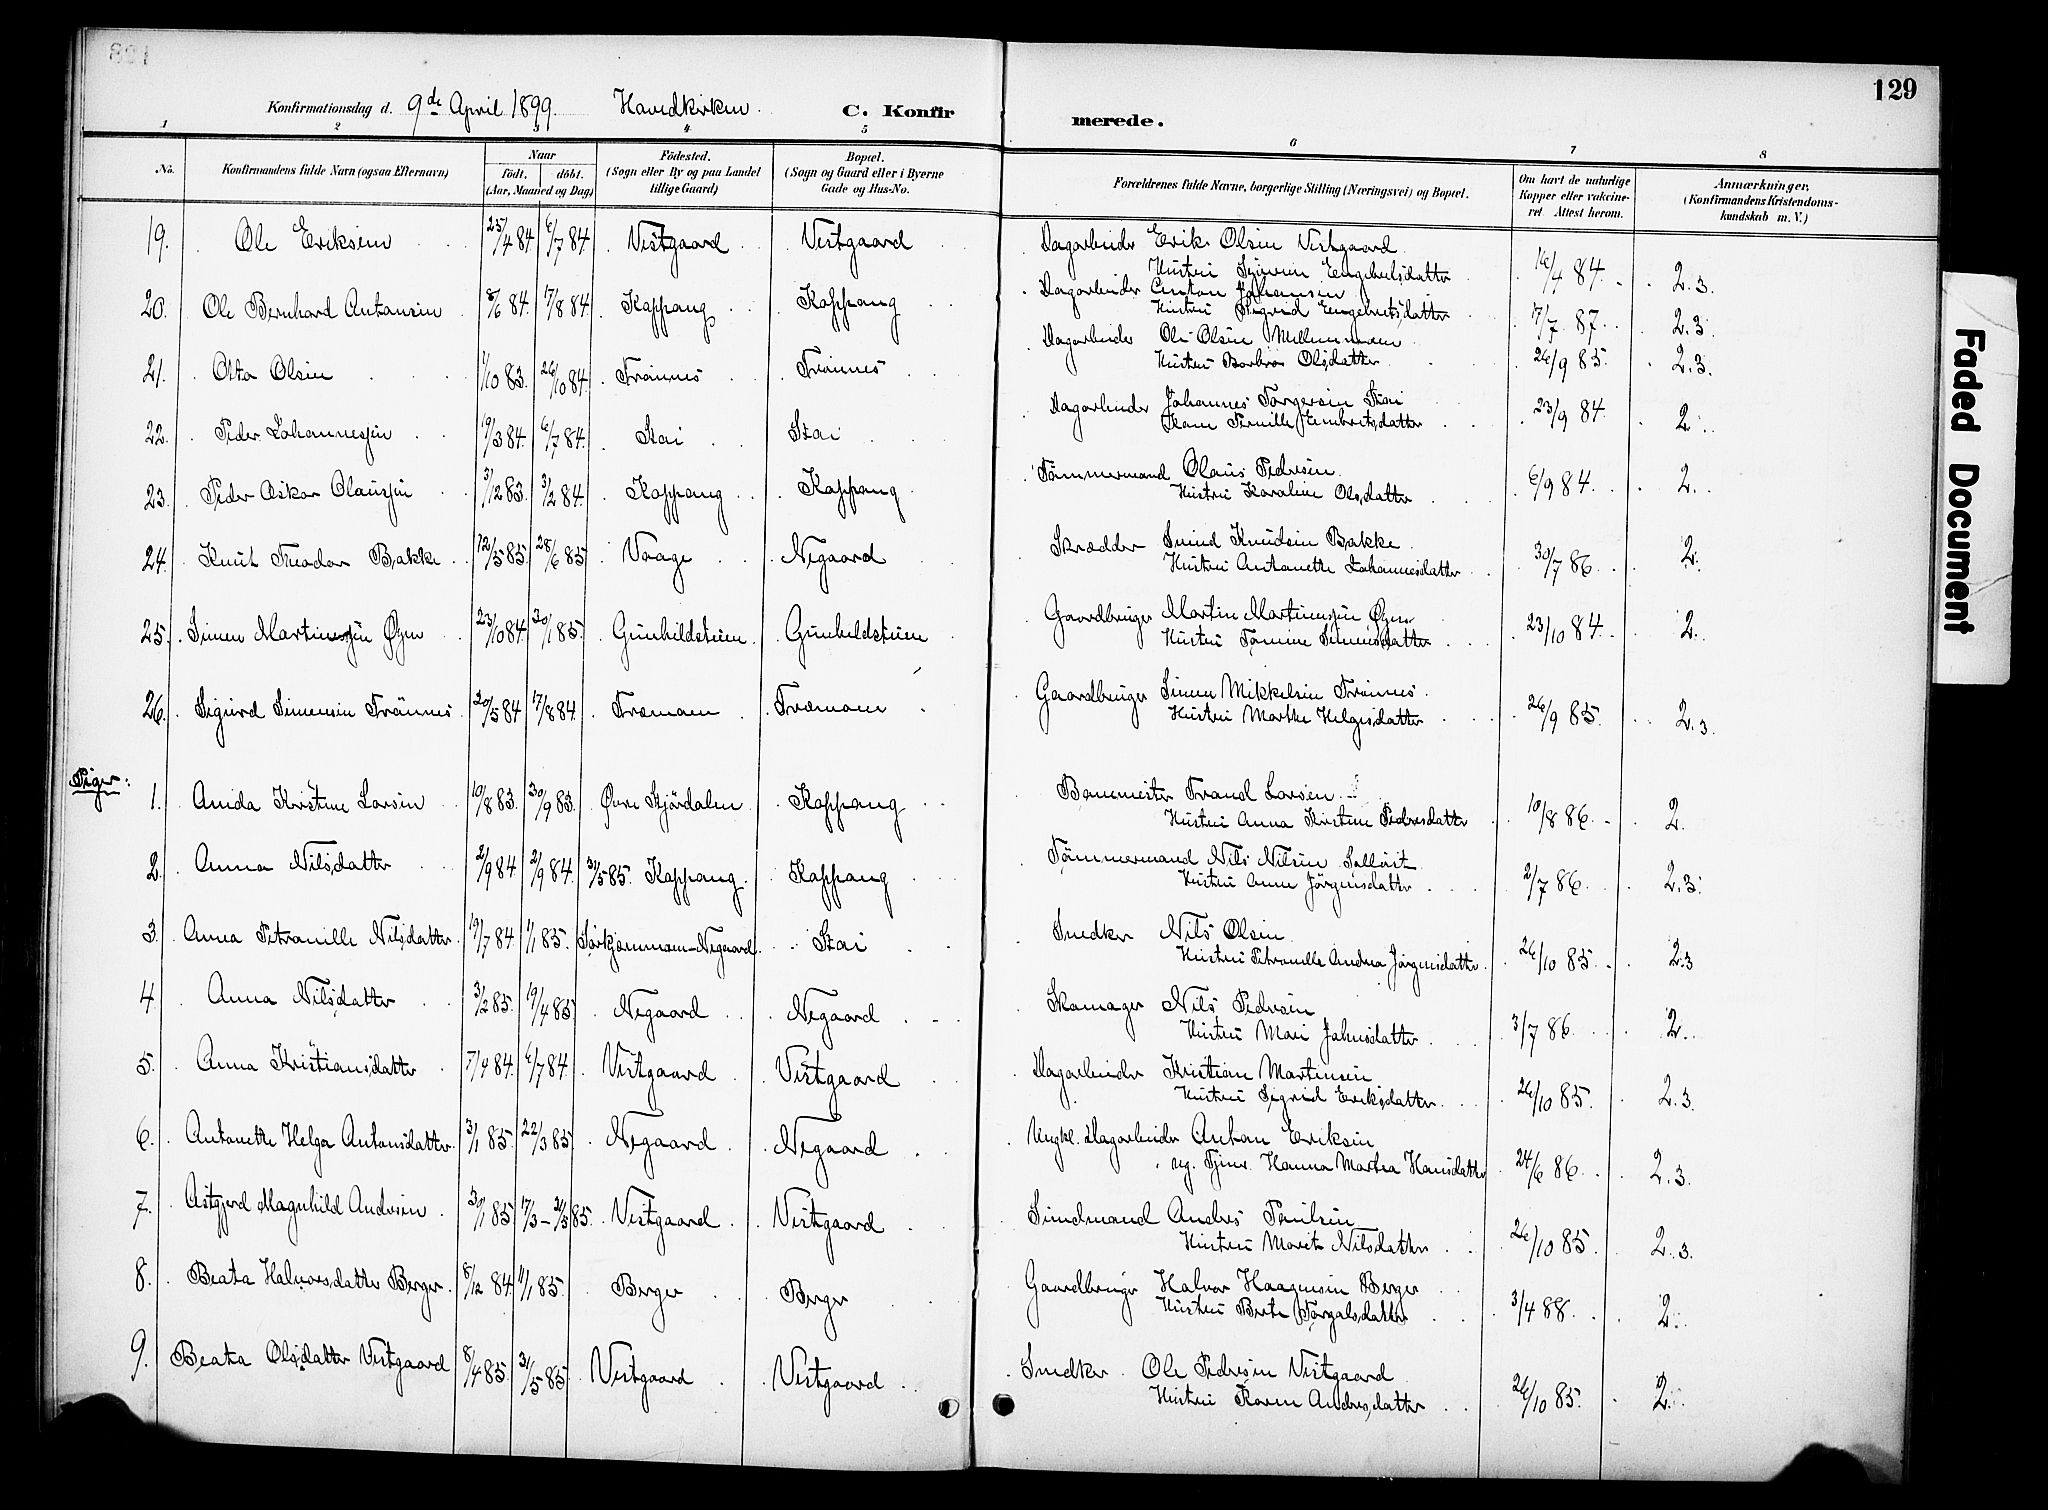 129
Konfirmationsdag d. 9de April 1899. Hovedkirken. C. Konfirmerede.
1 2 3 4 5 6 7 8
No. Konfirmandens fulde Navn (ogsaa Efternavn) Naar Födested. Bopæl. Forældrenes fulde Navne, borgerlige Stilling (Næringsvei) og Bopæl. Om havt de naturlige Anmærkninger,
födt. döbt. (Sogn eller By og paa Landet (Sogn og Gaard eller i Byerne Kopper eller vakcine- (Konfirmandens Kristendoms-
(Aar, Maaned og Dag) tillige Gaard) Gade og Hus-No. ret Attest herom. kundskab m. V.)
19. Ole Eriksen 25/4 84 6/7 84 Vestgaard Vestgaard Dagarbeider Erik Olsen Vestgaard 16/4 84. 2.3.
Hustru Engebretsdatter
20. Ole Bernhard Antonsen 8/6 84. 17/8 84. Koppang Koppang Dagarbeider Anton Johansen 17/7 87. 2.3.
Hustru Sigrid Engebretsdatter
21. Otto Olsen 1/10 83. 26/10 84. Trönnes Trönnes Dagarbeider Ole Olsen 26/9 85. 2.3.
Hustru Barbro Olsdatter
22. Peder Johannessen 19/3 84. 6/7 84. Stai Stai Dagarbeider Johannes Torgersen Stai 23/9 84. 2.
Kone Pernille Embretsdatter
23. Peder Oskar Olaussen 3/12 83. 3/2 84. Koppang Koppang Tömmermand Olaus Pedersen 6/9 84. 2.
Hustru Karoline Olsdatter
24. Knut Theodor Bakke 12/5 85. 28/6 85 Vaage Negaard Skrædder Knudsen Bakke 30/7 86. 2.
Hustru Antonette Johannesdatter
25. Simen Martinussen Øyen 23/10 84 30/1 85. Gunhildstuen Gunhildstuen Gaardbruger Martin Martinussen Øyen 23/10 84. 2.
Hustru Simensdatter
26. Sigurd Simensen Trönnes 20/5 84 17/8 84. Træmoen Træmoen Gaardbruger Simen Mikkelsen Trönnes 26/9 85. 2.3.
Hustru Marthe Helgesdatter
Piger:
1. Anida Kristine Larsen 10/8 83. 30/9 83. Övre Stjördalen Koppang Banemester Trond Larsen 10/8 86. 2.
Hustru Anna Kristine Pedersdatter
2. Anna Nilsdatter 2/9 84 2/9 84. 31/5 85. Koppang. Koppang Tömmermand Nils Nilsen 2/7 86. 2.3.
Hustru Anne Jörgensdatter
3. Anna Petronille Nilsdatter 19/7 84 1/1 85. Negaard. Stai Snedker Nils Olsen 26/10 85. 2.3
Hustru Petronelle Andrea Jörgensdatter
4. Anna Nilsdatter 3/2 85. 19/4 85 Negaard Negaard Skomager Nils Pedersen 3/7 86. 2.
Hustru Mari Johnsdatter
5. Anna Kristiansdatter 7/4 84. 6/7 84. Vestgaard Vestgaard Dagarbeider Kristian Martensen 26/10 85. 2.3.
Hustru Sigrid Eriksdatter
6. Antonette Helga Antonsdatter 3/1 85. 22/3 85. Negaard Negaard Ungkl. Dagarbeider Anton Eriksen 24/6 86. 2.3.
ug. Tjen. Hanna Martea Hansdatter
7. Astgjerd Magnhild Andresen 30/1 85 17/3 - 31/5 85. Vestgaard Vestgaard Andres Paulsen 26/10 85. 2.3.
Hustru Marit Nilsdatter
8. Beata Halvorsdatter Berger 8/12 84. 11/1 85. Berger Berger Gaardbruger Halvor Haagensen Berger 3/4 88. 2.
Hustru Berte
9. Beata Olsdatter Vestgaard 8/4 85. 31/5 85. Vestgaard Vestgaard Snedker Ole Pedersen Vestgaard 26/10 85. 2.
Hustru Karen Andresdatter
Faded Document